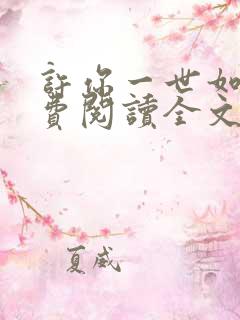 許你一世如
費閱讀全文
夏威